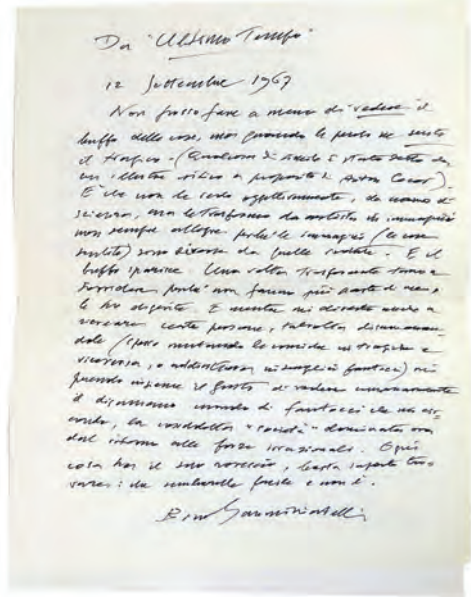 Da "Ultimo Tempo"
12 Settembre 1967
Non posso fare a meno di vedere il
buffo delle cose, ma quando le penso ne sento
il tragico - (Qualcosa di simile è stato detto da
un illustre critico a proposito di
E che non le vedo oggettivamente, da uomo di
scienza, ma le trasformo da artista in immagini
non sempre allegre perché le immagini (le cose
sentite) sono diverse da quelle vedute. E il
buffo sparisce. Una volta trasformate torno a
sorridere perché non fanno più parte di me,
le ho digerite. E mentre mi diverto ancora a
certe persone, talvolta
(spesso mutando le comiche in tragiche e
viceversa, o addirittura in fantocci) mi
prende insieme il gusto di vedere umanamente
il disumano mondo di fantocci che mi cir-
conda, la cosiddetta "società" dominata ora
dal ritorno alle forze irrazionali. Ogni
cosa ha il suo rovescio, basta saperlo tro-
vare: da sembrare facile e non è.